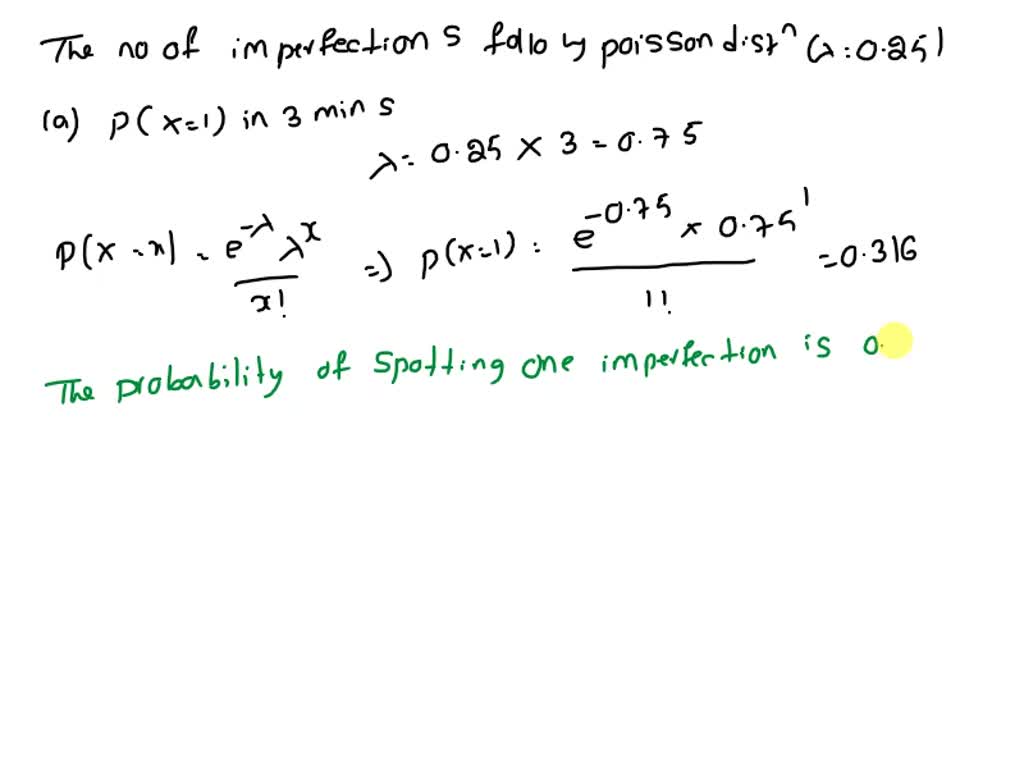 The no of imperfection s follo by poisson distⁿ (λ:0.25)
(a) P(x=1) in 3 min s
λ= 0.25 × 3 = 0.75
P(X=x) = e^-λ λ^x / x! => P(x=1) : e^-0.75 × 0.75^1 / 1! = 0.316
The probability of Spotting one imperfection is 0.